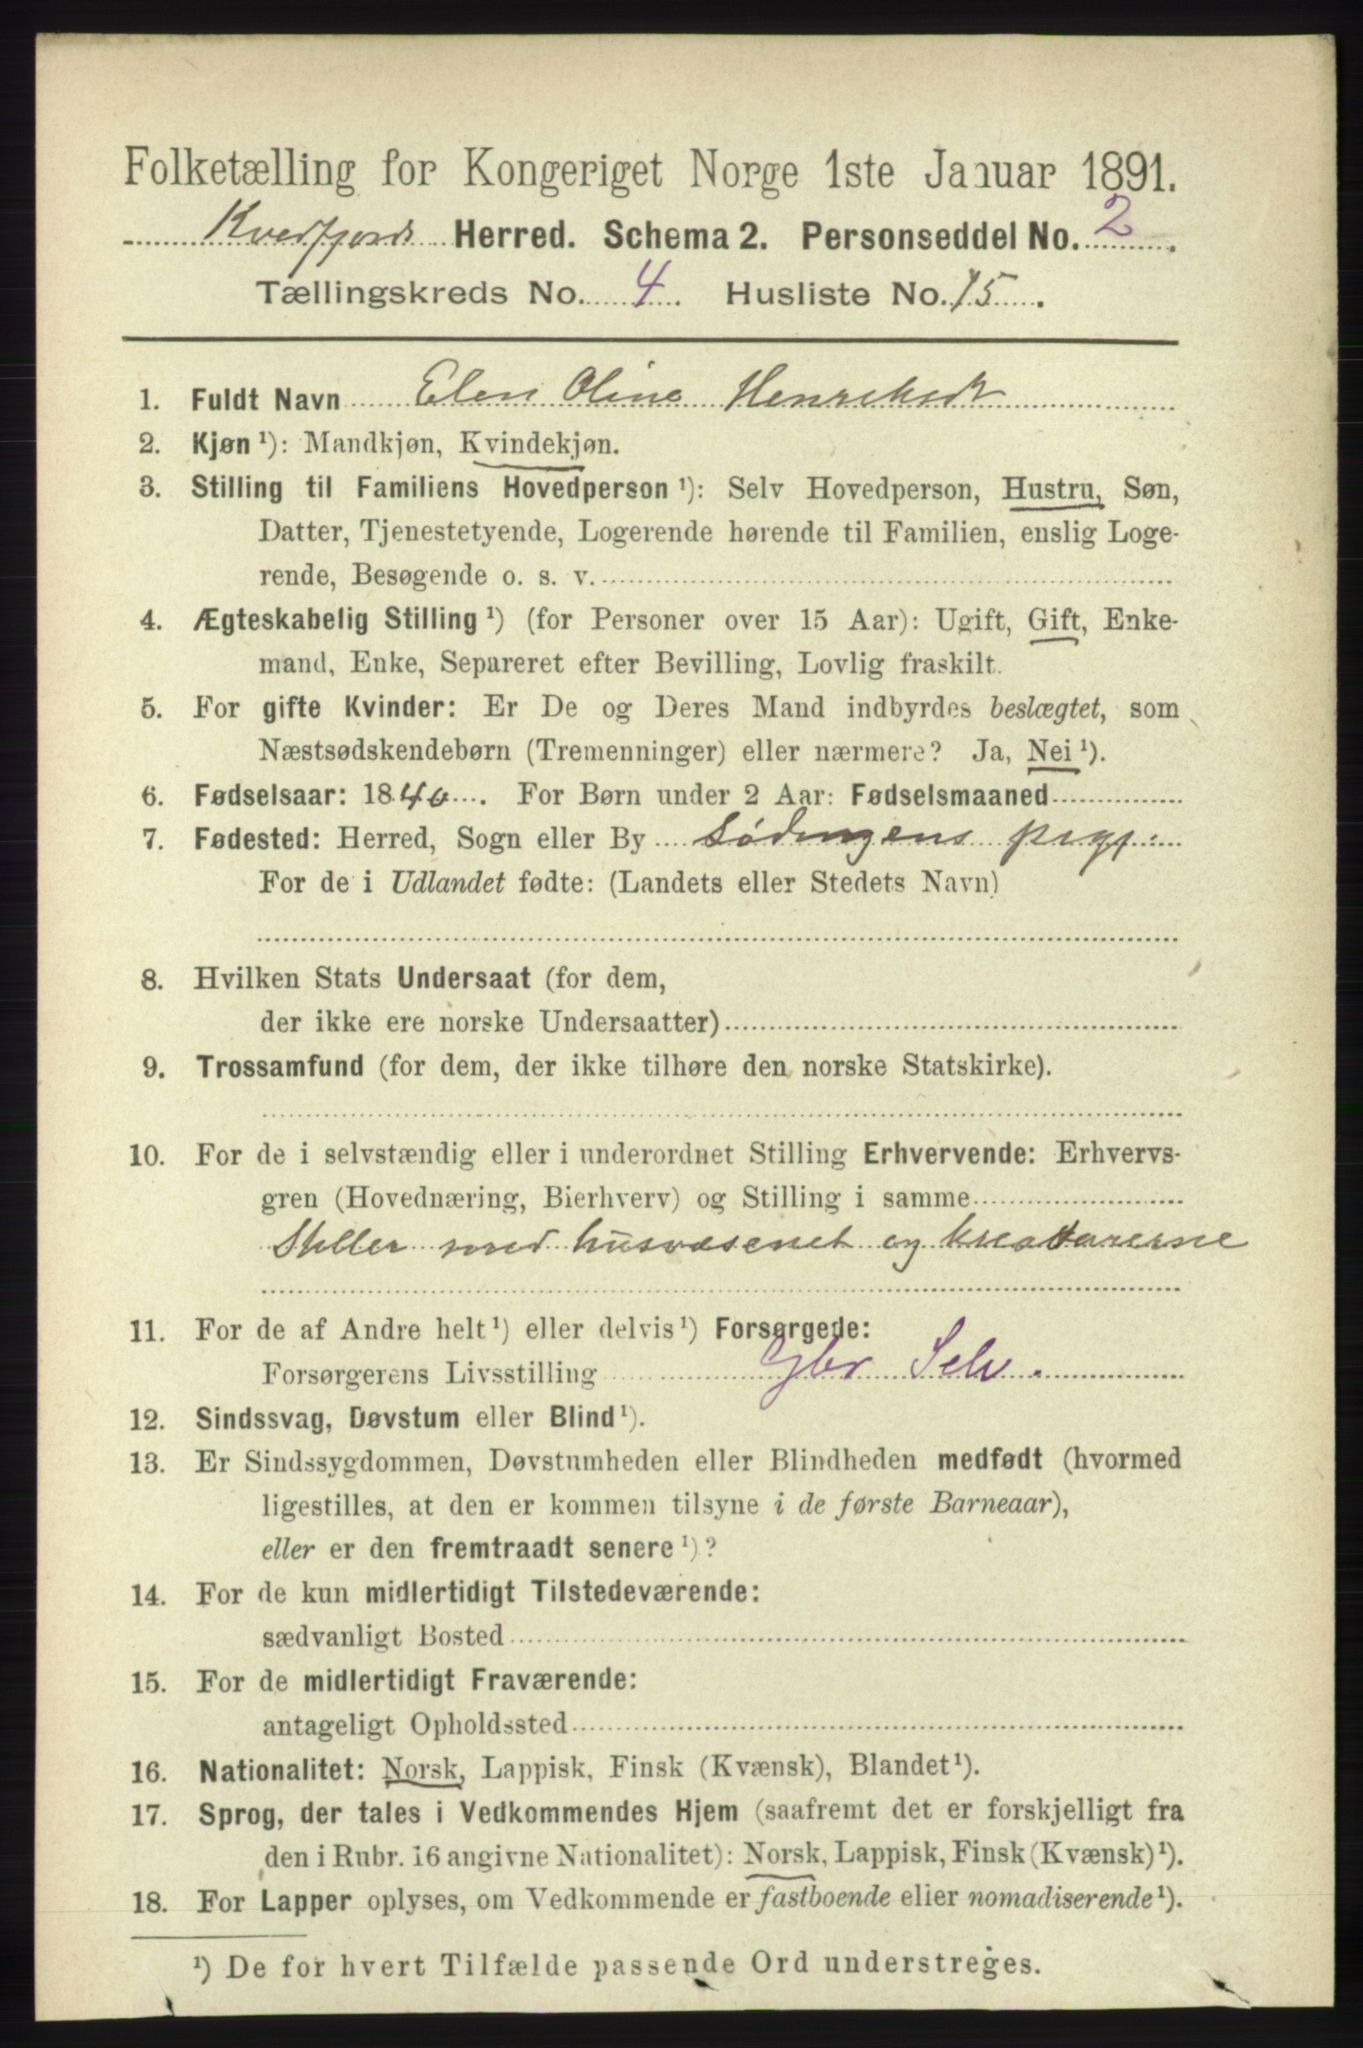 Folketælling for Kongeriget Norge 1ste Januar 1891.
Kvedfjords Herred. Schema 2. Personseddel No. 2.
Tællingskreds No. 4. Husliste No. 15.
1. Fuldt Navn Elen Oline Henriksdt
2. Kjøn ¹): Mandkjøn, Kvindekjøn.
3. Stilling til Familiens Hovedperson ¹): Selv Hovedperson, Hustru, Søn,
Datter, Tjenestetyende, Logerende hørende til Familien, enslig Loge-
rende, Besøgende o. s. v.
4. Ægteskabelig Stilling ¹) (for Personer over 15 Aar): Ugift, Gift, Enke-
mand, Enke, Separeret efter Bevilling, Lovlig fraskilt.
5. For gifte Kvinder: Er De og Deres Mand indbyrdes beslægtet, som
Næstsødskendebørn (Tremenninger) eller nærmere? Ja, Nei ¹).
6. Fødselsaar: 1840. For Børn under 2 Aar: Fødselsmaaned
7. Fødested: Herred, Sogn eller By Lødingens prgj:
For de i Udlandet fødte: (Landets eller Stedets Navn)
8. Hvilken Stats Undersaat (for dem,
der ikke ere norske Undersaatter)
9. Trossamfund (for dem, der ikke tilhøre den norske Statskirke).
10. For de i selvstændig eller i underordnet Stilling Erhvervende: Erhvervs-
gren (Hovednæring, Bierhverv) og Stilling i samme
Steller med husvæsenet og kreaturerne
11. For de af Andre helt ¹) eller delvis ¹) Forsørgede:
Forsørgerens Livsstilling Gbr Selv.
12. Sindssvag, Døvstum eller Blind ¹).
13. Er Sindssygdommen, Døvstumheden eller Blindheden medfødt (hvormed
ligestilles, at den er kommen tilsyne i de første Barneaar),
eller er den fremtraadt senere ¹)?
14. For de kun midlertidigt Tilstedeværende:
sædvanligt Bosted
15. For de midlertidigt Fraværende:
antageligt Opholdssted
16. Nationalitet: Norsk, Lappisk, Finsk (Kvænsk), Blandet ¹).
17. Sprog, der tales i Vedkommendes Hjem (saafremt det er forskjelligt fra
den i Rubr. 16 angivne Nationalitet): Norsk, Lappisk, Finsk (Kvænsk) ¹).
18. For Lapper oplyses, om Vedkommende er fastboende eller nomadiserende ¹).
¹) De for hvert Tilfælde passende Ord understreges.